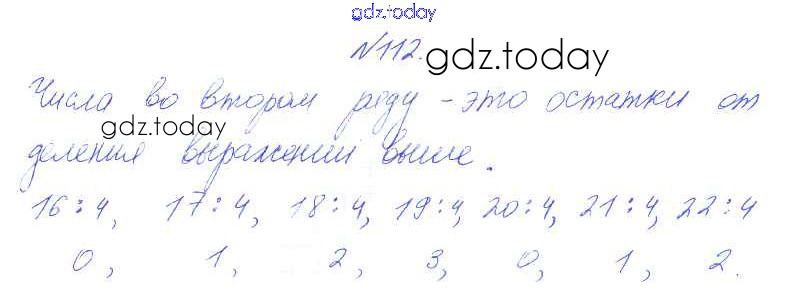 gdz.today
№112. gdz.today
Числа во втором ряду - это остатки от
gdz.today
деления выражений выше.
16:4, 17:4, 18:4, 19:4, 20:4, 21:4, 22:4
0, 1, 2, 3, 0, 1, 2.